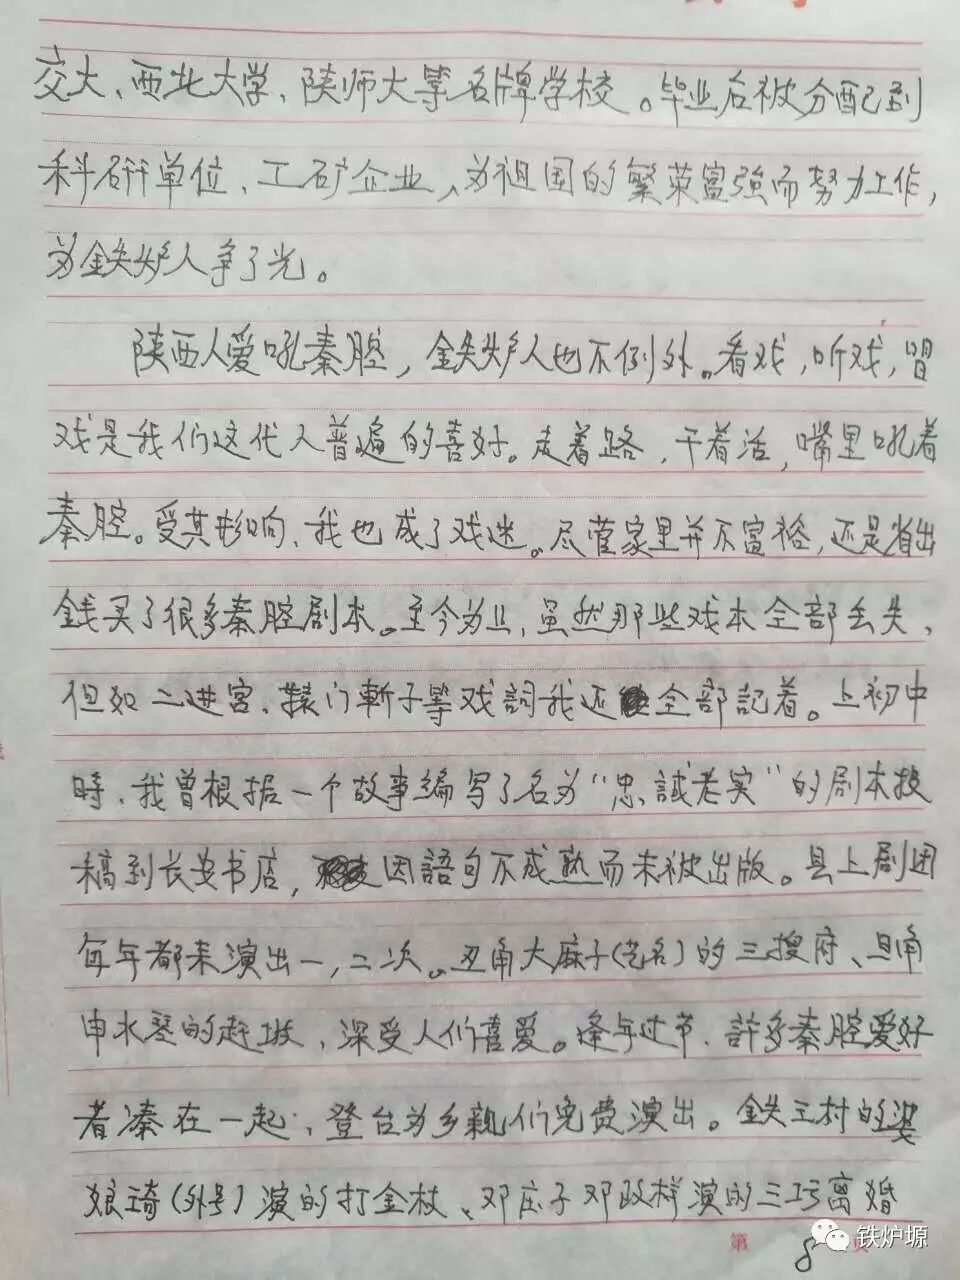 交大、西北大学、陕师大等名牌学校。毕业后被分配到
科研单位、工矿企业,为祖国的繁荣富强而努力工作,
为鉄炉人争了光。
陕西人爱吼秦腔,鉄炉人也不例外。看戏,听戏,唱
戏是我们这代人普遍的喜好。走着路,干着活,嘴里吼着
秦腔。受其影响、我也成了戏迷。尽管家里并不富裕,还是省出
錢买了很多秦腔剧本。至今为止,虽然那些戏本全部丢失、
但如二进宫、辕门斬子等戏詞我还全部記着。上初中
時、我曾根据一个故事编写了名为“忠誠老实”的剧本投
稿到长安书店,因語句不成熟而未被出版。县上剧团
每年都来演出一,二次。丑角大麻子(艺名)的三搜府、旦角
申水琴的赶坡、深受人们喜爱。逢年过节、許多秦腔爱好
者凑在一起;登台为乡親们免费演出。鉄王村的婆
娘琦(外号)演的打金枝、邓庄子邓政样演的三巧离婚
第 8 页
铁炉塬